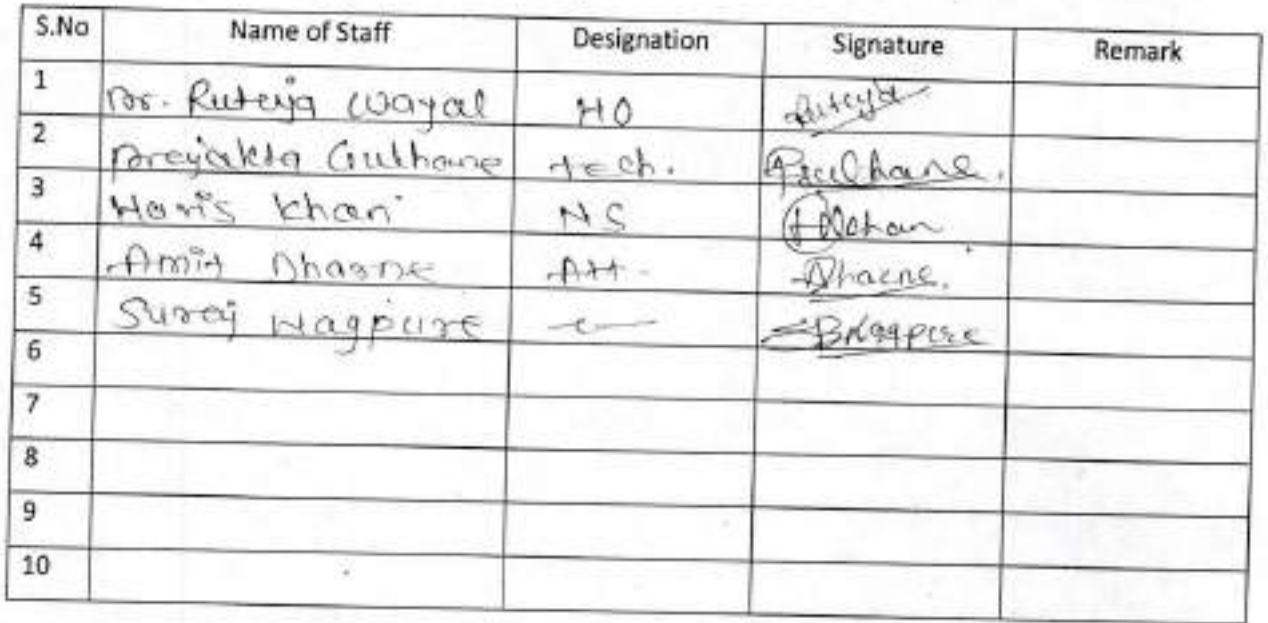 S.No Name of Staff Designation Signature Remark
1 Dr. Rutuja Wayal MO Rutuja
2 Prajakta Gulhane Tech. PGulhane.
3 Haris Khan NS HKhan
4 Amit Dhasne Att. Dhacne.
5 Suraj Nagpure SBNagpure
6
7
8
9
10